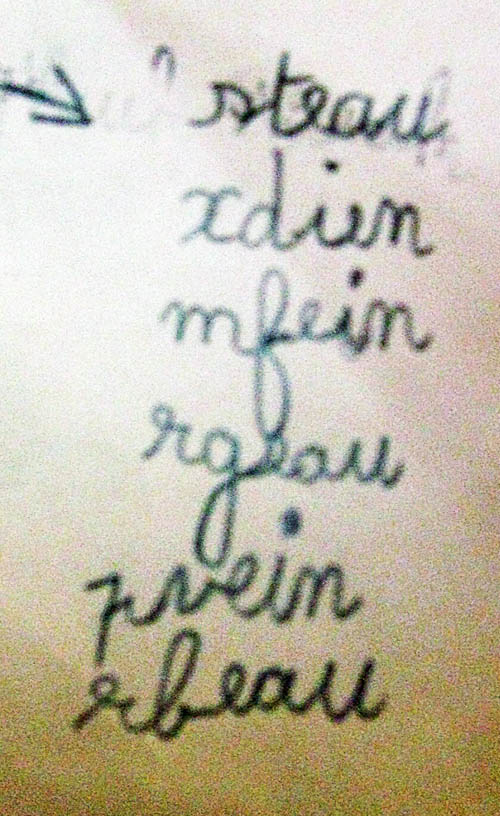 steau
xdien
mfein
rgeau
pvein
rbeau